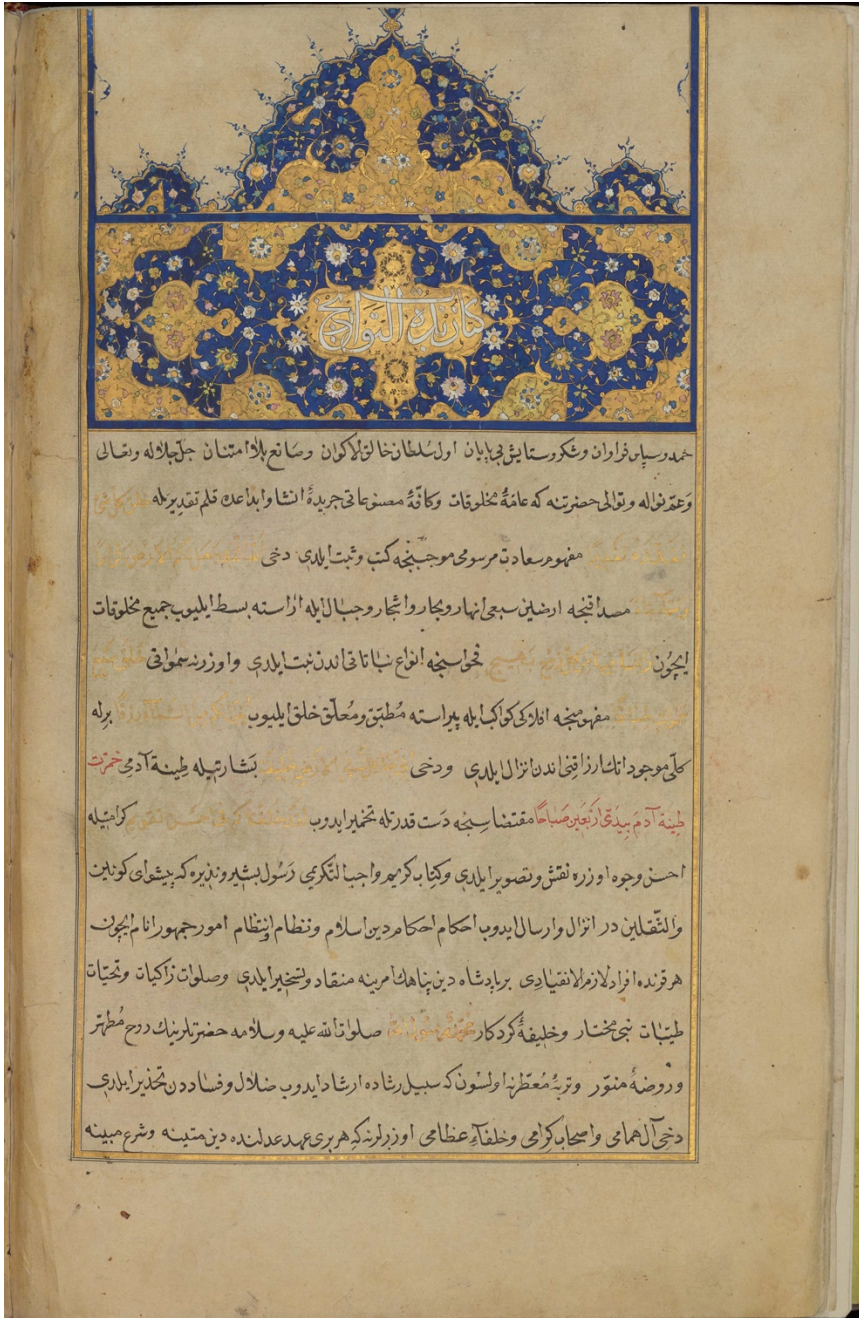 كتاب زبدة التواريخ
حمد و سپاس فراوان و شكر و ستايش بى پايان اول سلطان خالق الاكوان و صانع بلا امتنان جل جلاله و تعالى
و عم نواله و توالى حضرتنه كه عامهٔ مخلوقات و كافهٔ مصنوعاتى جريدهٔ انشا و ابداعده قلم تقديرله
مفهوم سعادت مرسومى موجبنجه كتب و ثبت ايلدى دخى
مصداقنجه ارضين سبعى انهار و بحار و اشجار و جبال ايله آراسته بسط ايليوب جميع مخلوقات
ايچون فحواسنجه انواع نباتاتى اندن نبت ايلدى و اوزرنه سمواتى
مفهومنجه افلاكى كواكب ايله پيراسته مطبق و معلق خلق ايليوب برله
كلى موجوداتك ارزاقنى اندن انزال ايلدى و دخى بشارتيله طينة آدمى خمرت
طينة آدم بيدى اربعين صباحا مقتضاسنجه دست قدرتله تخمير ايدوب كرامتيله
احسن وجوه اوزره نقش و تصوير ايلدى و كتاب كريم واجب التكريمى رسول بشير و نذيره كه پيشواى كونين
و الثقلين در انزال و ارسال ايدوب احكام احكام دين اسلام و نظام و انتظام امور جمهور انام ايچون
هر قرنده افراد لازم الانقيادى بر پادشاه دين پناهك امرينه منقاد و تسخير ايلدى و صلوات زاكيات و تحيات
طيبات نبى مختار و خليفهٔ كردكار صلوات الله عليه و سلامه حضرتلرينك روح مطهر
و روضهٔ منور و تربهٔ معطرنه اولسون كه سبيل رشاده ارشاد ايدوب ضلال و فساددن تحذير ايلدى
دخى آل همامى و اصحاب كرامى و خلفاء عظامى اوزرلرنه كه هر برى عهد عدلنده دين متينه و شرع مبينه